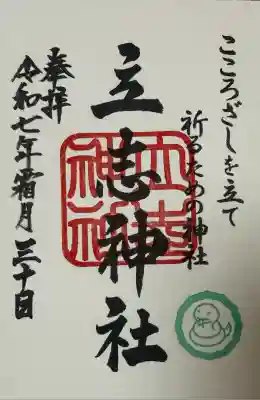 こころざしを立て
祈るための神社
立志神社
奉拝
令和七年霜月三十日
立志
神社